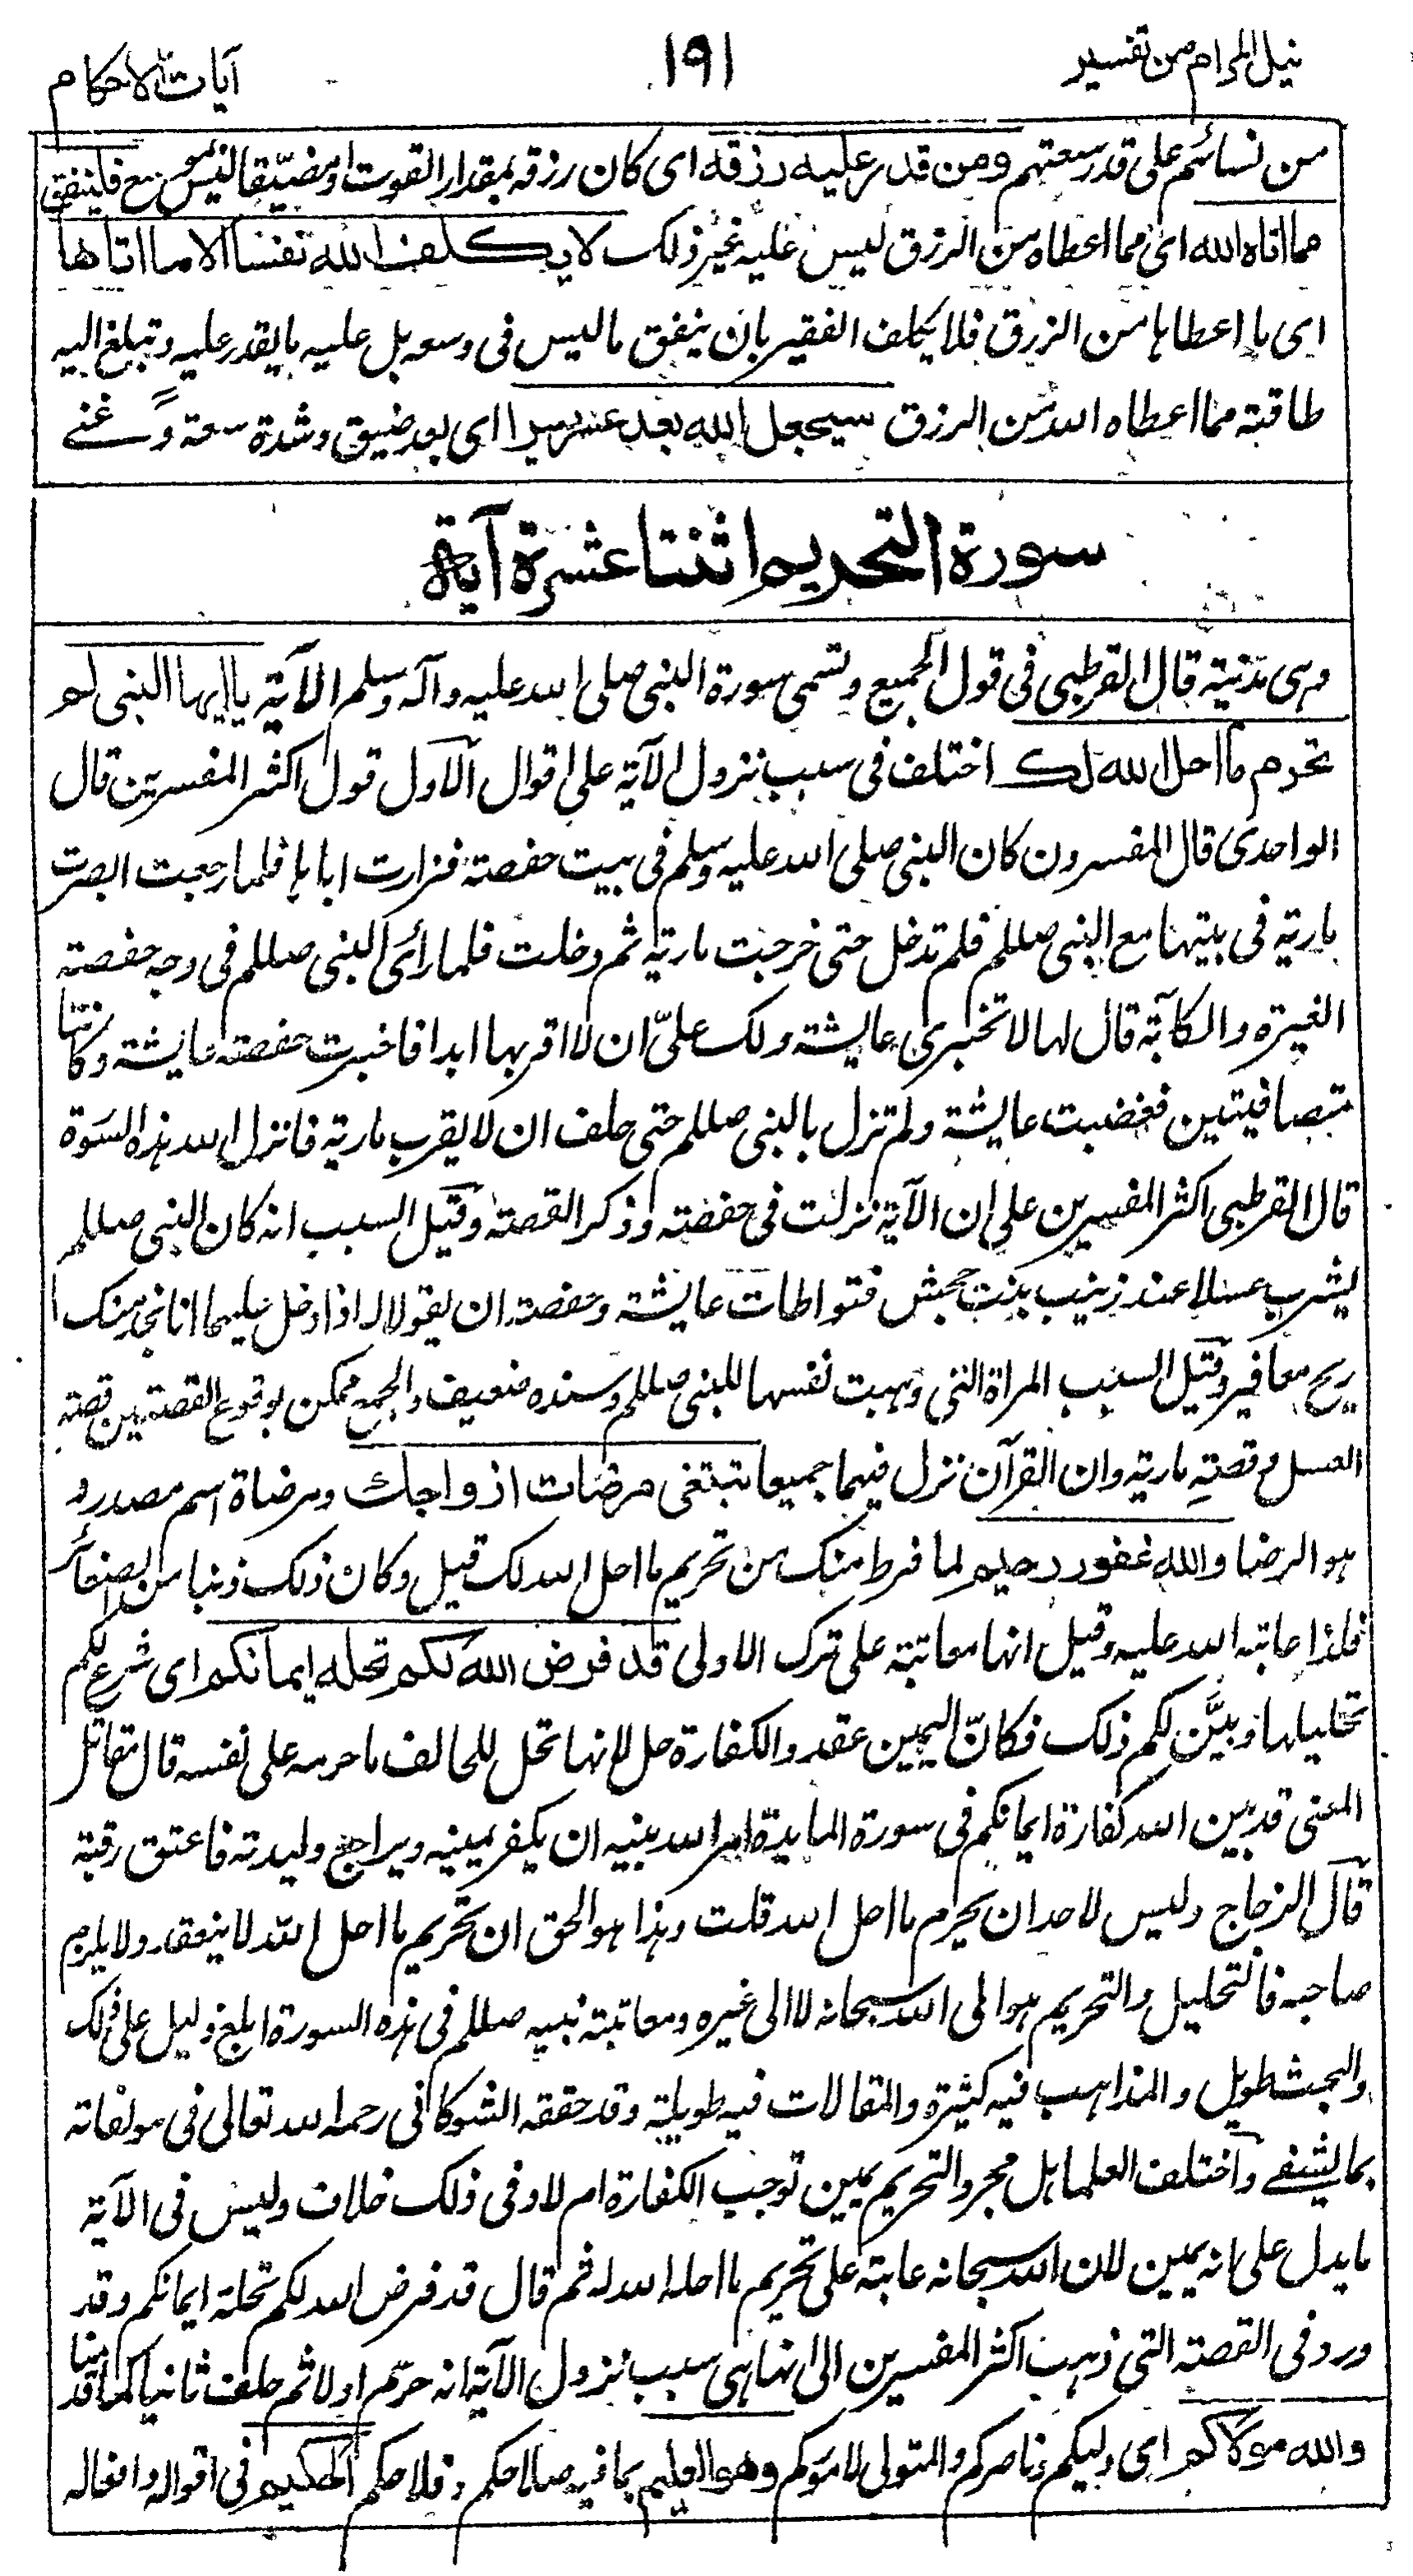 نيل المرام من تفسير
١٩١
آيات الاحكام
من نسائهم على قدر سعتهم ومن قدر عليه رزقه اى كان رزقه بمقدار القوت او مضيّقا ليس بموسع فلينفق
مما اتاه الله اى مما اعطاه من الرزق ليس عليه غير ذلك لا يكلف الله نفسا الا ما اتاها
اى ما اعطاها من الرزق فلا يكلف الفقير بان ينفق ما ليس فى وسعه بل عليه ما يقدر عليه وتبلغ اليه
طاقته مما اعطاه الله من الرزق سيجعل الله بعد عسر يسرا اى بعد ضيق وشدة سعة وغنى
سورة التحريم اثنتا عشرة آية
وهى مدنية قال القرطبى فى قول الجميع وتسمى سورة النبى صلى الله عليه وآله وسلم الآية يا ايها النبى لم
تحرم ما احل الله لك اختلف فى سبب نزول الآية على اقوال الاول قول اكثر المفسرين قال
الواحدى قال المفسرون كان النبى صلى الله عليه وسلم فى بيت حفصة فزارت اباها فلما رجعت ابصرت
مارية فى بيتها مع النبى صللم فلم تدخل حتى خرجت مارية ثم دخلت فلما رأى النبى صللم فى وجه حفصة
الغيرة والكآبة قال لها لا تخبرى عايشة ولك علىّ ان لا اقربها ابدا فاخبرت حفصة عايشة وكانتا
متصافيتين فغضبت عايشة ولم تزل بالنبى صللم حتى حلف ان لا يقرب مارية فانزل الله هذه السورة
قال القرطبى اكثر المفسرين على ان الآية نزلت فى حفصة وذكر القصة وقيل السبب انه كان النبى صللم
يشرب عسلا عند زينب بنت جحش فتواطات عايشة وحفصة ان يقولا له اذا دخل عليهما انا نجد منك
ريح مغافير وقيل السبب المراة التى وهبت نفسها للنبى صللم وسنده ضعيف والجمع ممكن بوقوع القصتين قصة
العسل وقصة مارية وان القرآن نزل فيهما جميعا تبتغى مرضات ازواجك ومرضاة اسم مصدر و
هو الرضا والله غفور رحيم لما فرط منك من تحريم ما احل الله لك قيل وكان ذلك ذنبا من الصغائر
فلذا عاتبه الله عليه وقيل انها معاتبة على ترك الاولى قد فرض الله لكم تحلة ايمانكم اى شرع لكم
تحليلها وبيّن لكم ذلك فكانّ اليمين عقد والكفارة حل لانها تحل للحالف ما حرمه على نفسه قال مقاتل
المعنى قد بين الله كفارة ايمانكم فى سورة المايدة امر الله نبيه ان يكفر يمينه ويراجع وليدته فاعتق رقبة
قال الزجاج وليس لاحد ان يحرم ما احل الله قلت وهذا هو الحق ان تحريم ما احل الله لا ينعقد ولا يلزم
صاحبه فالتحليل والتحريم هو الى الله سبحانه لا الى غيره ومعاتبته نبيه صللم فى هذه السورة ابلغ دليل على ذلك
والبحث طويل والمذاهب فيه كثيرة والمقالات فيه طويلة وقد حققه الشوكانى رحمه الله تعالى فى مولفاته
بما يشفى واختلف العلما هل مجرد التحريم يمين توجب الكفارة ام لا وفى ذلك خلاف وليس فى الآية
ما يدل على انه يمين لان الله سبحانه عاتبه على تحريم ما احله الله له ثم قال قد فرض الله لكم تحلة ايمانكم وقد
ورد فى القصة التى ذهب اكثر المفسرين الى انها هى سبب نزول الآية انه حرّم اولا ثم حلف ثانيا كما قدمنا
والله مولاكم اى وليكم وناصركم والمتولى لاموركم وهو العليم بما فيه صلاحكم وفلاحكم الحكيم فى اقواله وافعاله